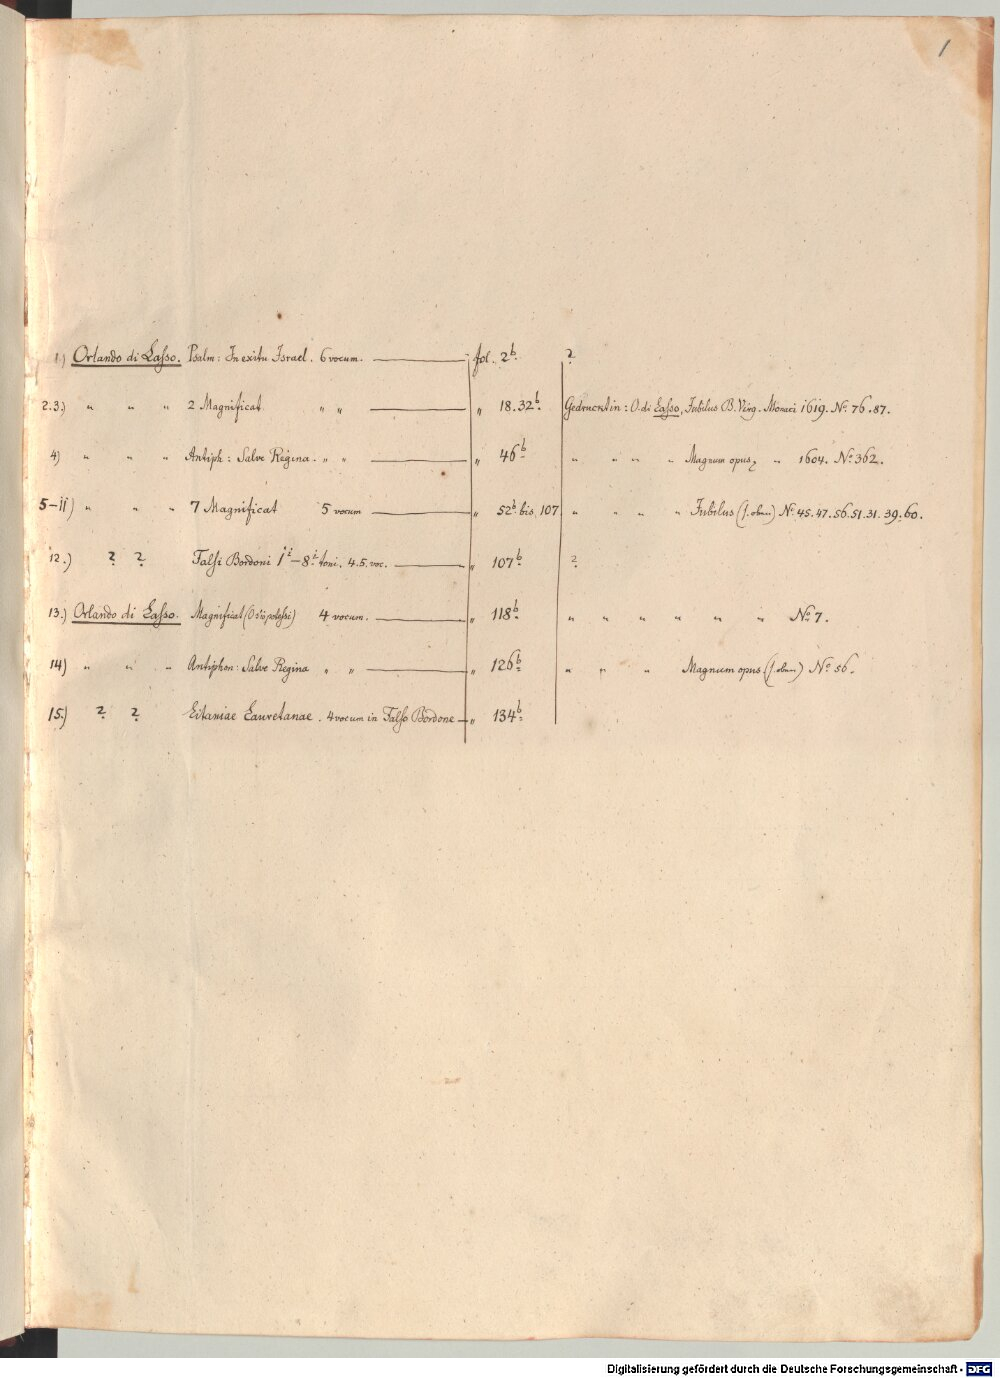 1
1.) Orlando di Lasso. Psalm: In exitu Israel. 6 vocum. fol. 2b. ?
2.3.) " " " 2 Magnificat " " " 18. 32b. Gedruckt in: O. di Lasso, Jubilus B. Virg. Monaci 1619. No. 76. 87.
4) " " " Antiph: Salve Regina. " " " 46b. " " " " Magnum opus, " 1604. No. 362.
5-11) " " " 7 Magnificat 5 vocum " 52b. bis 107. " " " " Jubilus No. 45. 47. 56. 51. 31. 39. 60.
12.) ? ? Falsi Bordoni 1i - 8i toni. 4. 5. voc. " 107b. ?
13.) Orlando di Lasso. Magnificat 4 vocum. " 118b. " " " " " " No. 7.
14) " " " Antiphon: Salve Regina " " " 126b. " " " Magnum opus No. 56.
15.) ? ? Litaniae Lauretanae. 4 vocum in Falso Bordone " 134b.
Digitalisierung gefördert durch die Deutsche Forschungsgemeinschaft - DFG